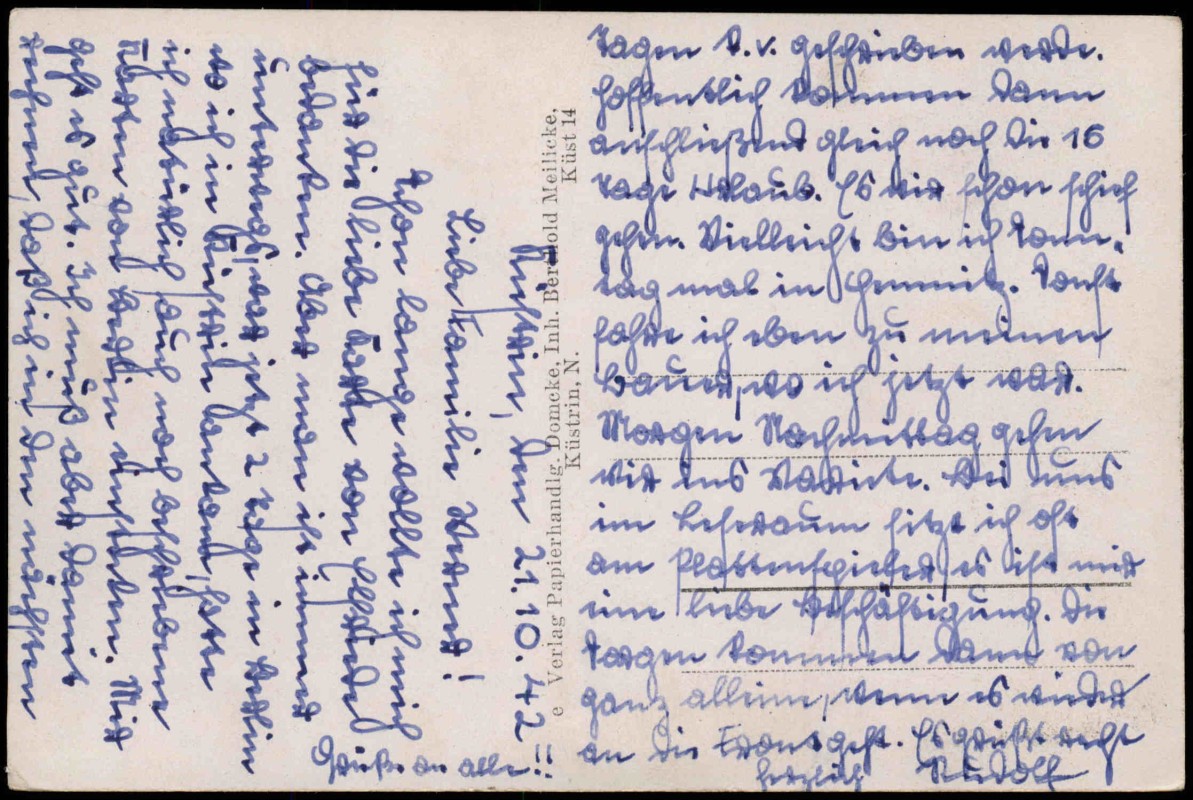 Küstrin, den 21.10.42
Liebe Familie Werend!
Schon lange wollte ich mich
für die liebe Karte von Elfriede
bedanken. Aber man ist immer
unterwegs, war jetzt 2 Tage in Berlin
wo ich in Küstrin ankam, hatte
ich natürlich auch noch
von Berlin aus. Mir
geht es gut. Ich muß aber damit
rechnen, daß ich in den nächsten
Tagen k.v. geschrieben werde.
Hoffentlich kommen dann
anschließend gleich noch die 16
Tage Urlaub. Es wird schon schief
gehen. Vielleicht bin ich Sonn-
tag mal in Chemnitz. Sonst
fahre ich eben zu meinen
Bauer, wo ich jetzt war.
Morgen Nachmittag gehen
wir ins Variete. Bei uns
im Leseraum sitze ich oft
am Plattenspieler, es ist mir
eine liebe Beschäftigung. Die
Sorgen kommen dann von
ganz alleine, wenn es wieder
an die Front geht. Es grüßt recht
herzlich Rudolf
Grüße an alle!!
e Verlag Papierhandlg. Domcke, Inh. Berthold Meilicke,
Küstrin, N. Küst 14